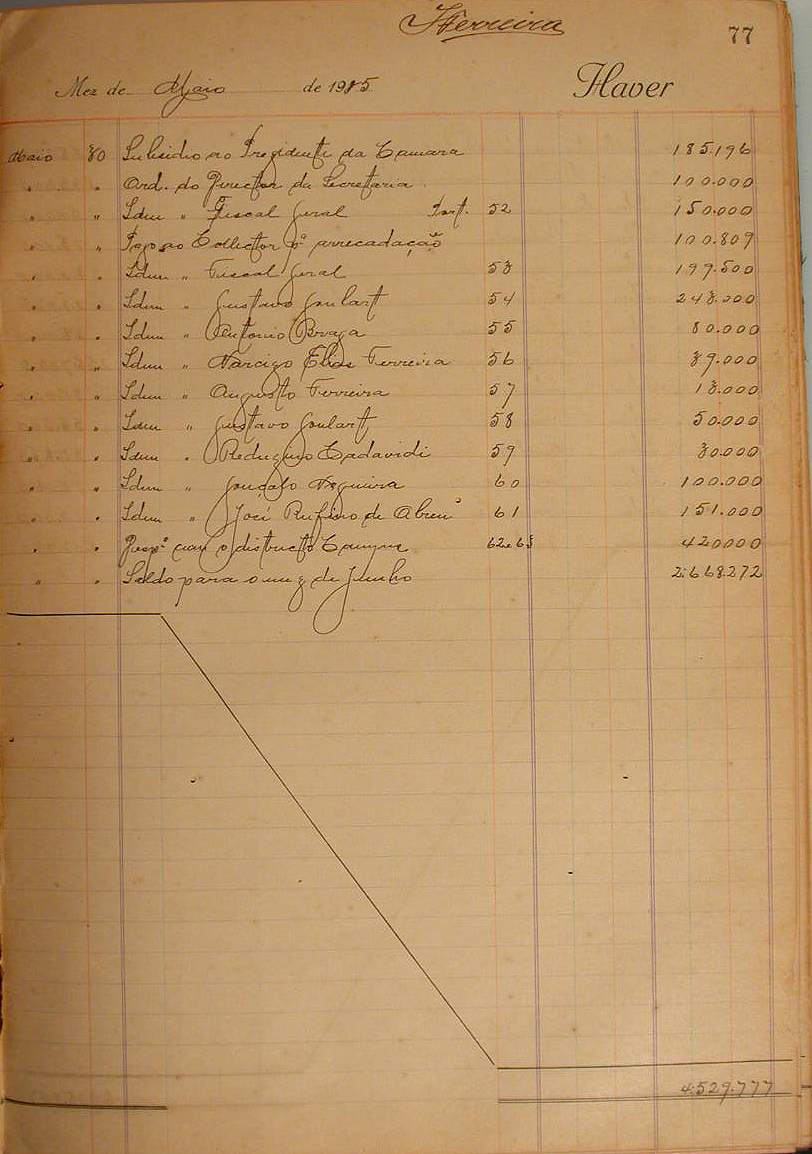 Ferreira
77
Mez de Maio de 1915 Haver
Maio 30 Subsidio ao Presidente da Camara 185.196
" " Ord. do Director da Secretaria 100.000
" " Idem " Fiscal Geral Port. 52 150.000
" " Pago ao Collector pª arrecadação 100.809
" " Idem " Fiscal Geral 53 197.500
" " Idem " Gustavo Goulart 54 243.000
" " Idem " Antonio Braga 55 80.000
" " Idem " Narcizo Elias Ferreira 56 39.000
" " Idem " Augusto Ferreira 57 13.000
" " Idem " Gustavo Goulart 58 50.000
" " Idem " Cadavidi 59 30.000
" " Idem " Gonçalo Nogueira 60 100.000
" " Idem " José Rufino de Abreu 61 151.000
" " Despª com o districto 62e63 420000
" " Saldo para o mez de Junho 2.668.272
4.529.777